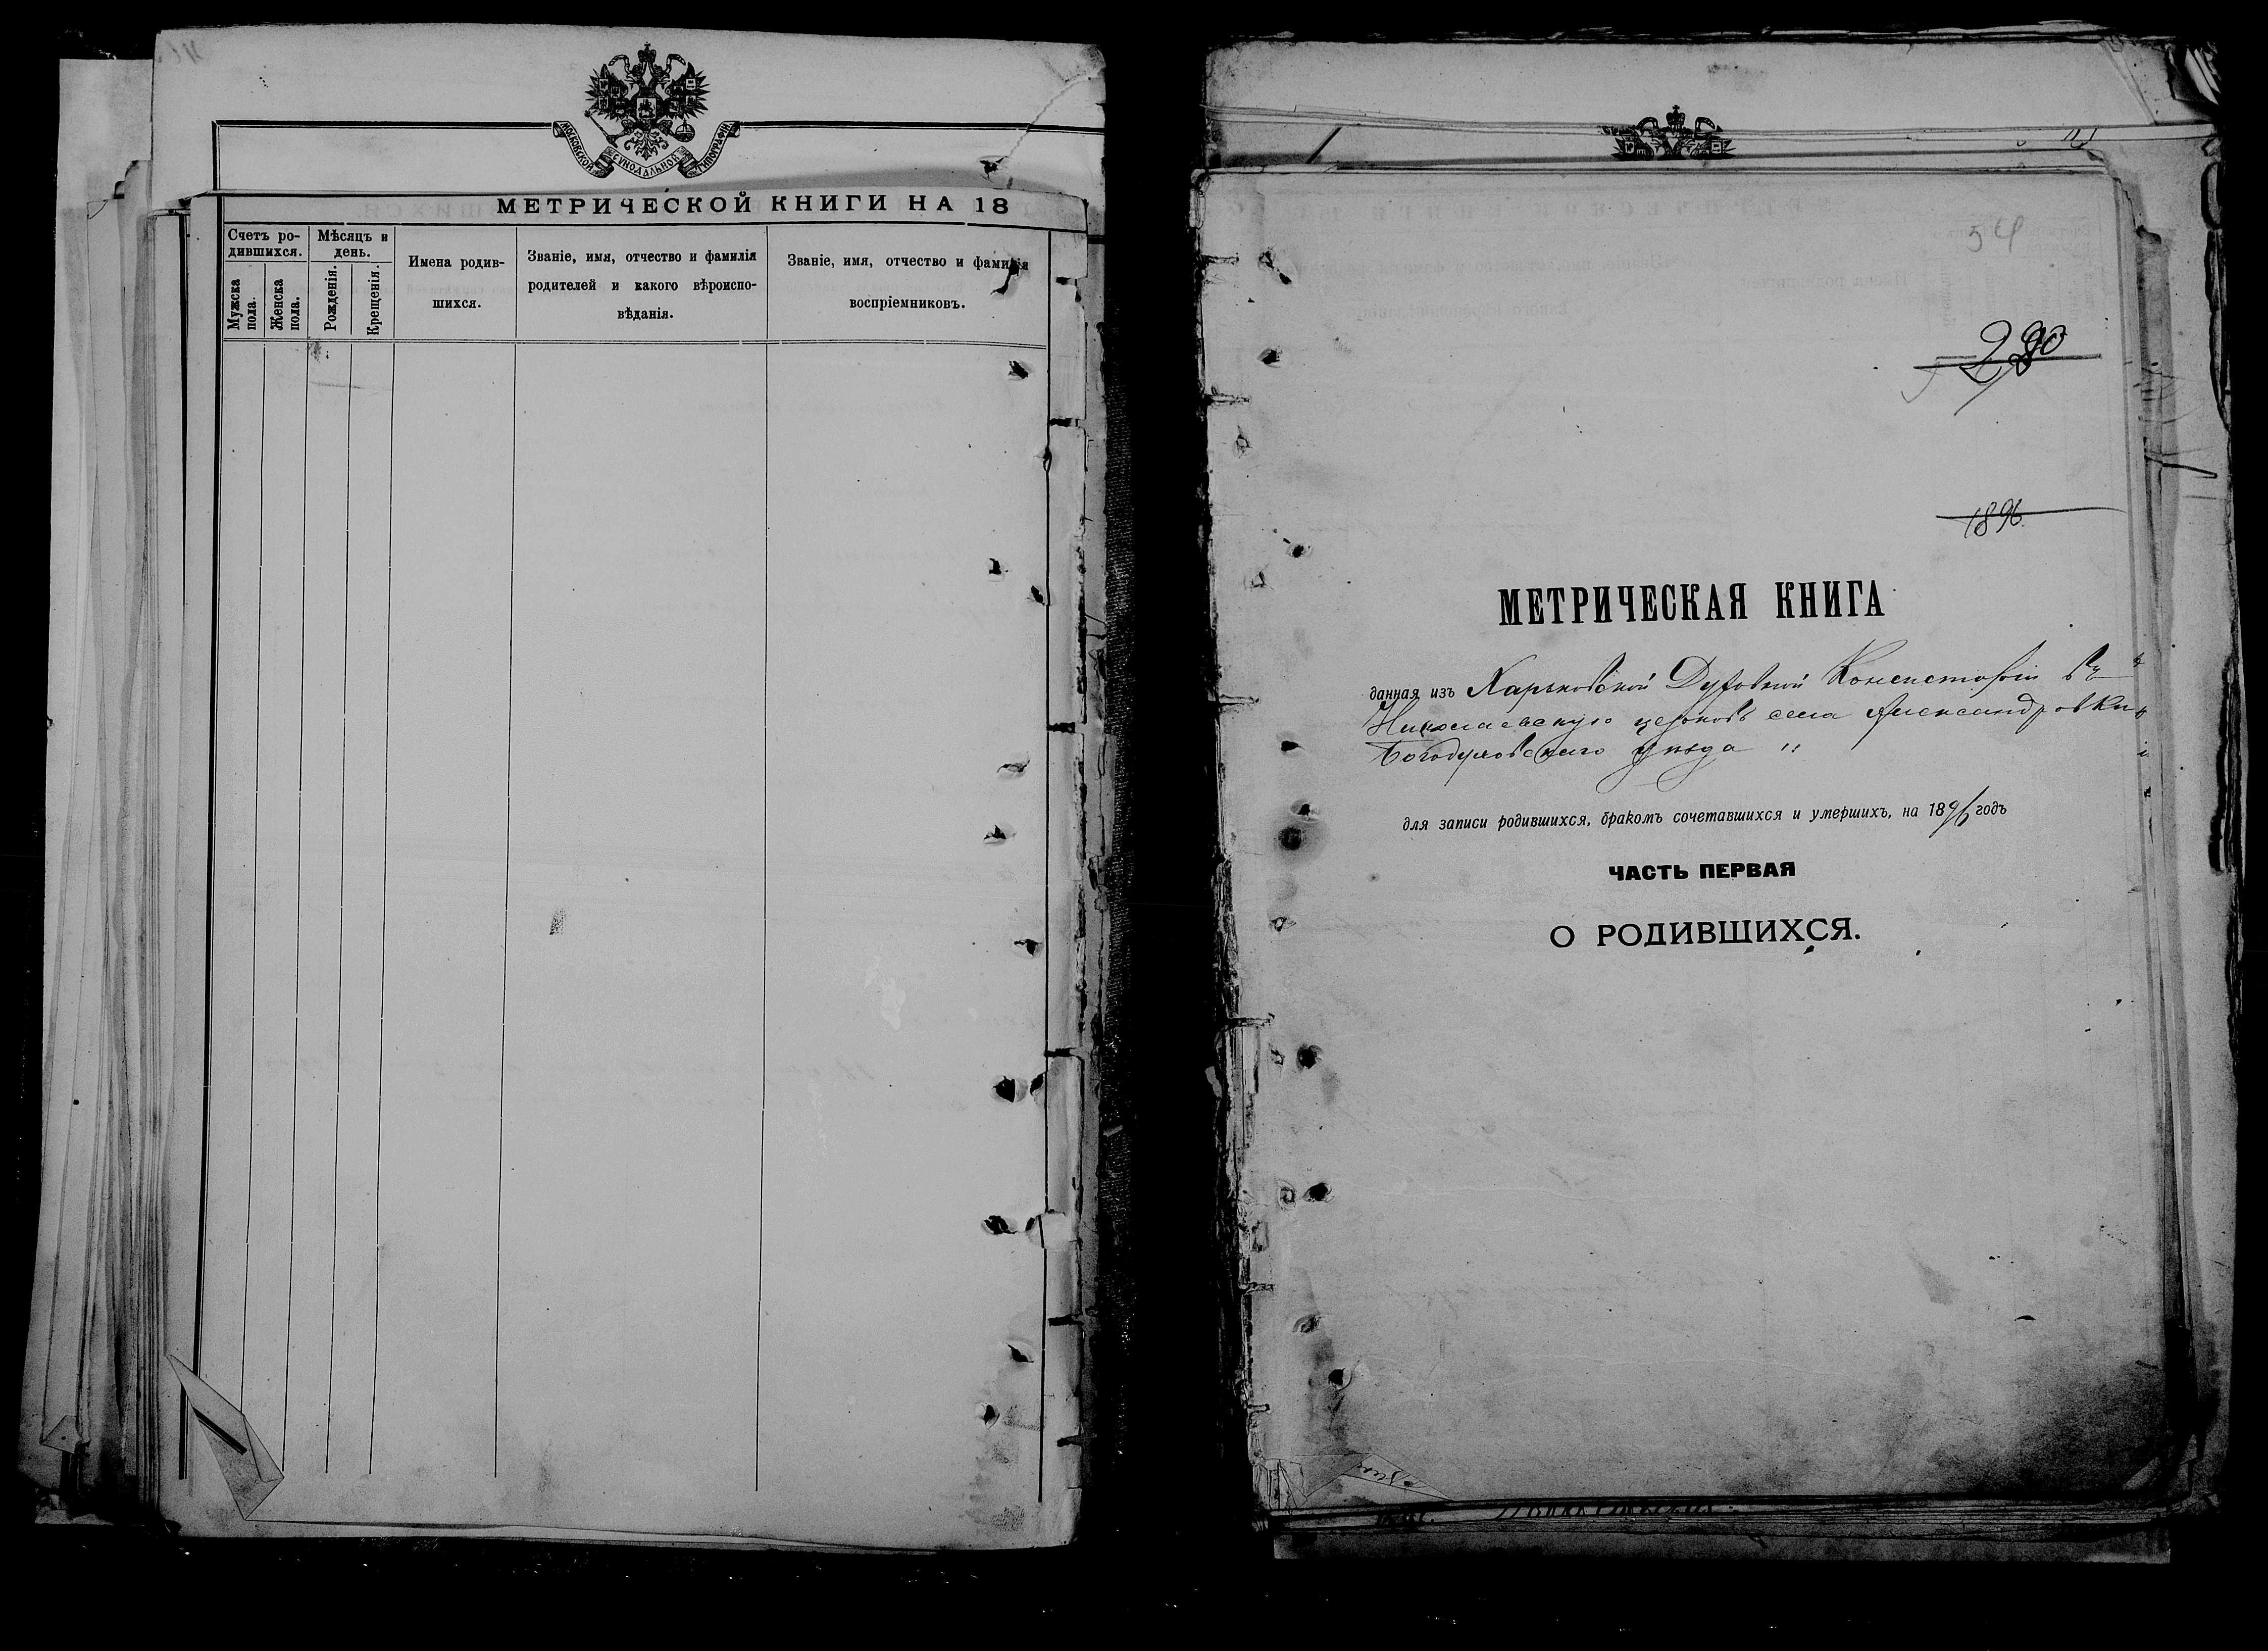 МОСКОВСКОЙ СѴНОДАЛЬНОЙ ТИПОГРАФІИ
МЕТРИЧЕСКОЙ КНИГИ НА 18
Счетъ ро-
дившихся.
Мужска
пола.
Женска
пола.
Мѣсяцъ и
день.
Рожденія.
Крещенія.
Имена родив-
шихся.
Званіе, имя, отчество и фамилія
родителей и какого вѣроиспо-
вѣданія.
Званіе, имя, отчество и фамилія
воспріемниковъ.
54
1896.
МЕТРИЧЕСКАЯ КНИГА
данная изъ Харьковской Духовной Консисторіи въ
Николаевскую церковь села Александровки
Богодуховскаго уѣзда "
для записи родившихся, бракомъ сочетавшихся и умершихъ, на 1896 годъ
ЧАСТЬ ПЕРВАЯ
О РОДИВШИХСЯ.